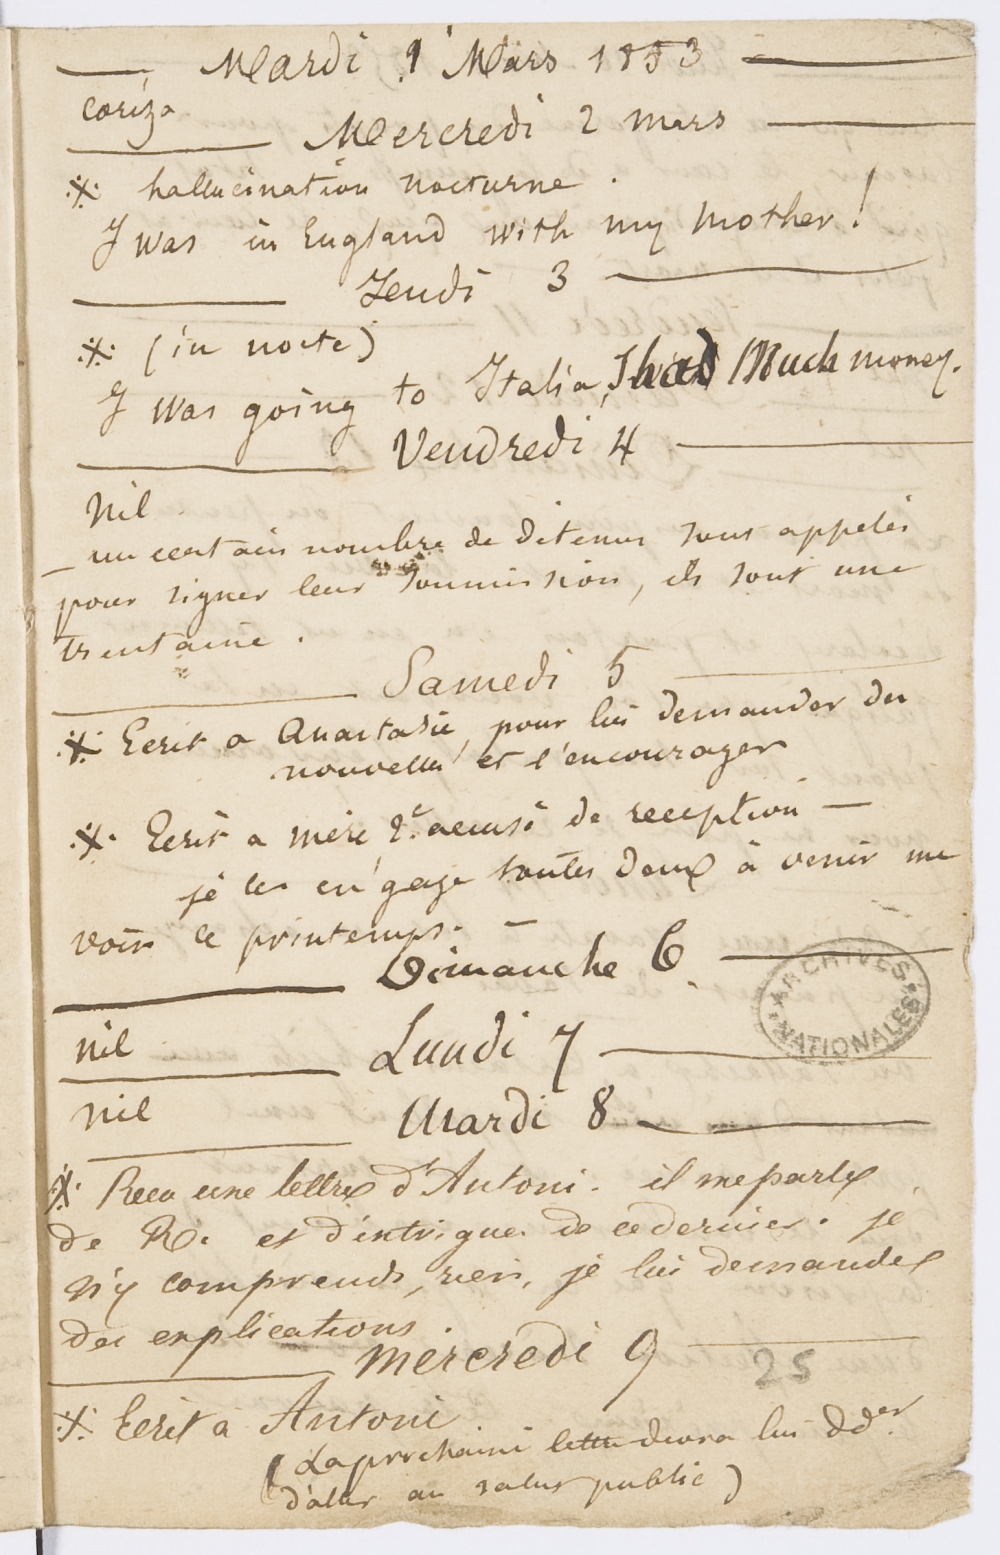 Mardi 1 Mars 1853
coriza
Mercredi 2 mars
hallucination nocturne.
I was in England with my mother!
Jeudi 3
(in nocte)
I was going to Italia, I had Much money.
Vendredi 4
Nil
— un certain nombre de détenus sont appelés
pour signer leur soumission, ils sont une
trentaine.
Samedi 5
Ecrit a Anastasie, pour lui demander des
nouvelles et l'encourager
Ecrit a mère 2e accusé de reception —
je les engage toutes deux à venir me
voir ce printemps. —
Dimanche 6.
nil
Lundi 7
nil
Mardi 8
Recu une lettre d'Antoni. il me parle
de R. et d'intrigues de ce dernier. je
n'y comprends, rien, je lui demande
des explications.
mercredi 9
25
Ecrit à Antoni.
(La prochaine lettre devra lui dder
d'aller au salut public)
ARCHIVES NATIONALES